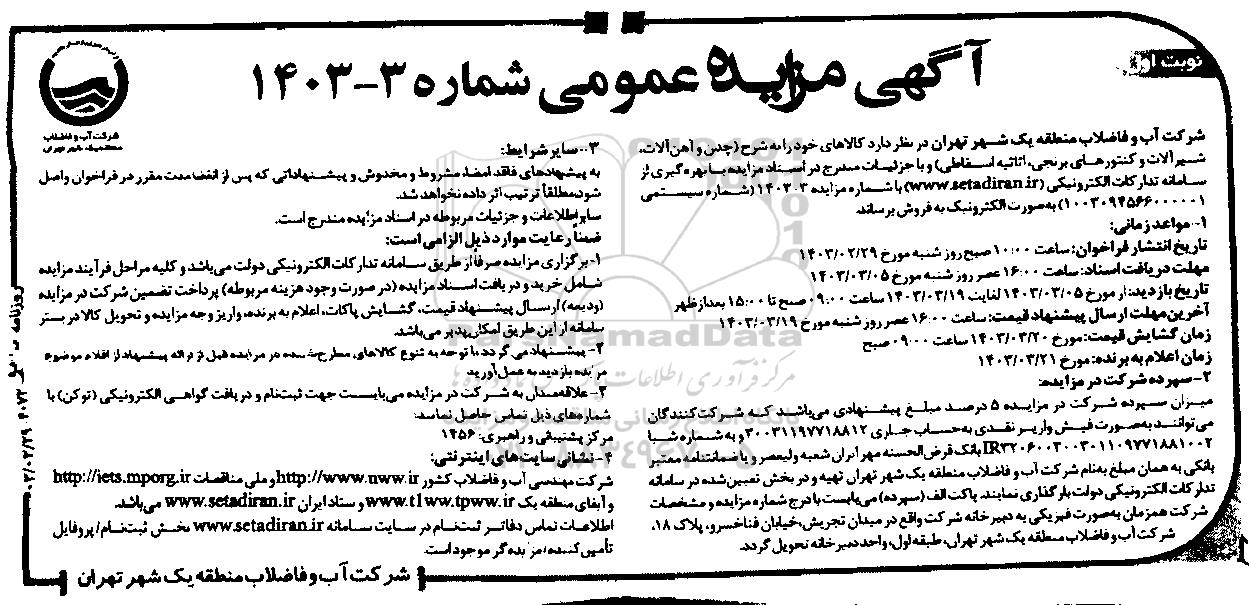 نوبت اول
آگهی مزایده عمومی شماره ۳-۱۴۰۳
شرکت آب و فاضلاب
منطقه یک شهر تهران
شرکت آب و فاضلاب منطقه یک شهر تهران در نظر دارد کالاهای خود را به شرح (چدن و آهن آلات،
شیرآلات و کنتورهای برنجی، اثاثیه اسقاطی) و با جزئیات مندرج در اسناد مزایده با بهره گیری از
سامانه تدارکات الکترونیکی (www.setadiran.ir) با شماره مزایده ۱۴۰۳۰۳ (شماره سیستمی
۱۰۰۳۰۹۴۵۶۶۰۰۰۰۰۱) به صورت الکترونیک به فروش برساند.
۱-مواعد زمانی:
تاریخ انتشار فراخوان: ساعت ۱۰:۰۰ صبح روز شنبه مورخ ۱۴۰۳/۰۲/۲۹
مهلت دریافت اسناد: ساعت ۱۶:۰۰ عصر روز شنبه مورخ ۱۴۰۳/۰۳/۰۵
تاریخ بازدید: از مورخ ۱۴۰۳/۰۳/۰۵ لغایت ۱۴۰۳/۰۳/۱۹ ساعت ۰۹:۰۰ صبح تا ۱۵:۰۰ بعدازظهر
آخرین مهلت ارسال پیشنهاد قیمت: ساعت ۱۶:۰۰ عصر روز شنبه مورخ ۱۴۰۳/۰۳/۱۹
زمان گشایش قیمت: مورخ ۱۴۰۳/۰۳/۲۰ ساعت ۰۹:۰۰ صبح
زمان اعلام به برنده: مورخ ۱۴۰۳/۰۳/۲۱
۲-سپرده شرکت در مزایده:
میزان سپرده شرکت در مزایده ۵ درصد مبلغ پیشنهادی می‌باشد که شرکت کنندگان
می توانند به صورت فیش واریز نقدی به حساب جاری ۳۰۰۳۱۱۹۷۷۱۸۸۱۲ و به شماره شبا
بانک قرض الحسنه مهر ایران شعبه ولیعصر و یا ضمانتنامه معتبر
بانکی به همان مبلغ به نام شرکت آب و فاضلاب منطقه یک شهر تهران تهیه و در بخش تعیین شده در سامانه
تدارکات الکترونیکی دولت بارگذاری نمایند. پاکت الف (سپرده) می بایست با درج شماره مزایده و مشخصات
شرکت همزمان به صورت فیزیکی به دبیرخانه شرکت واقع در میدان تجریش، خیابان فناخسرو، پلاک ۱۸،
شرکت آب و فاضلاب منطقه یک شهر تهران، طبقه اول، واحد دبیرخانه تحویل گردد.
۳-سایر شرایط:
به پیشنهادهای فاقد امضا، مشروط و مخدوش و پیشنهاداتی که پس از انقضا مدت مقرر در فراخوان واصل
شود، مطلقاً ترتیب اثر داده نخواهد شد.
سایر اطلاعات و جزئیات مربوطه در اسناد مزایده مندرج است.
ضمناً رعایت موارد ذیل الزامی است:
۱-برگزاری مزایده صرفاً از طریق سامانه تدارکات الکترونیکی دولت می‌باشد و کلیه مراحل فرآیند مزایده
شامل خرید و دریافت اسناد مزایده (در صورت وجود هزینه مربوطه) پرداخت تضمین شرکت در مزایده
(ودیعه) ارسال پیشنهاد قیمت، گشایش پاکات، اعلام به برنده، واریز وجه مزایده و تحویل کالا در بستر
سامانه از این طریق امکان پذیر می‌باشد.
۲- پیشنهاد می گردد با توجه به تنوع کالاهای مطرح شده در مزایده قبل از ارائه پیشنهاد از اقلام موضوع
مزایده بازدید به عمل آورید
۳-علاقه‌مندان به شرکت در مزایده می‌بایست جهت ثبت‌نام و دریافت گواهی الکترونیکی (توکن) با
شماره‌های ذیل تماس حاصل نمایند:
مرکز پشتیبانی و راهبری: ۱۴۵۶
۴-نشانی سایت های اینترنتی:
شرکت مهندسی آب و فاضلاب کشور http://www.nww.ir و ملی مناقصات http://iets.mporg.ir
و آبفای منطقه یک www.t1ww.tpww.ir و ستاد ایران www.setadiran.ir می‌باشد.
اطلاعات تماس دفاتر ثبت‌نام در سایت سامانه www.setadiran.ir بخش ثبت‌نام / پروفایل
تأمین کننده/مزایده گر موجود است.
شرکت آب و فاضلاب منطقه یک شهر تهران
ParsNamadData